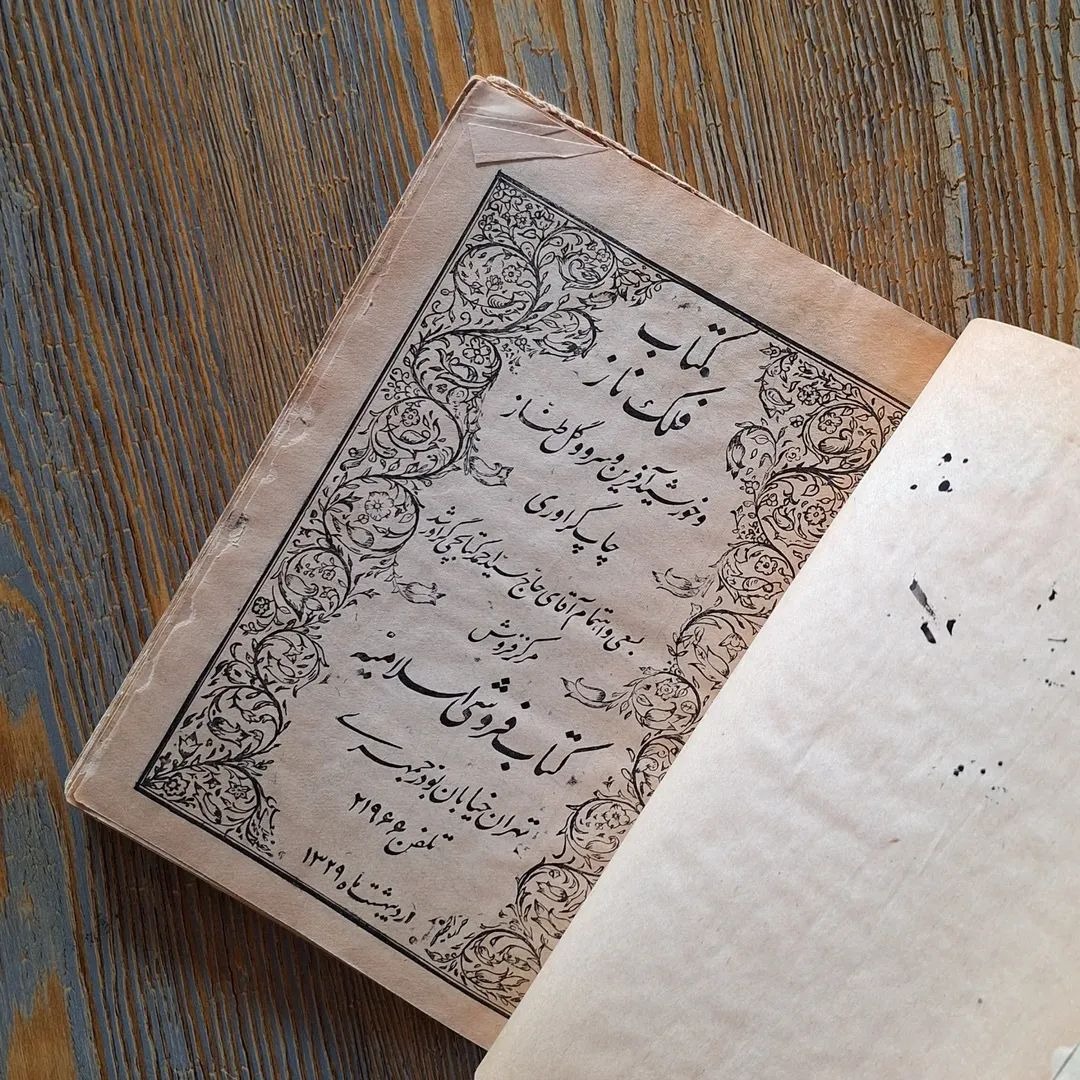 کتاب
فلک ناز
و خورشید آفرین و سرو و گل طناز
چاپ گراوری
بسعی و اهتمام آقای حاج سید احمد کتابچی گراور شد
مرکز فروش
کتاب فروشی اسلامیه
تهران خیابان بوذرجمهری
تلفن ۲۱۹۶۶
اردیبهشت ماه ۱۳۲۹